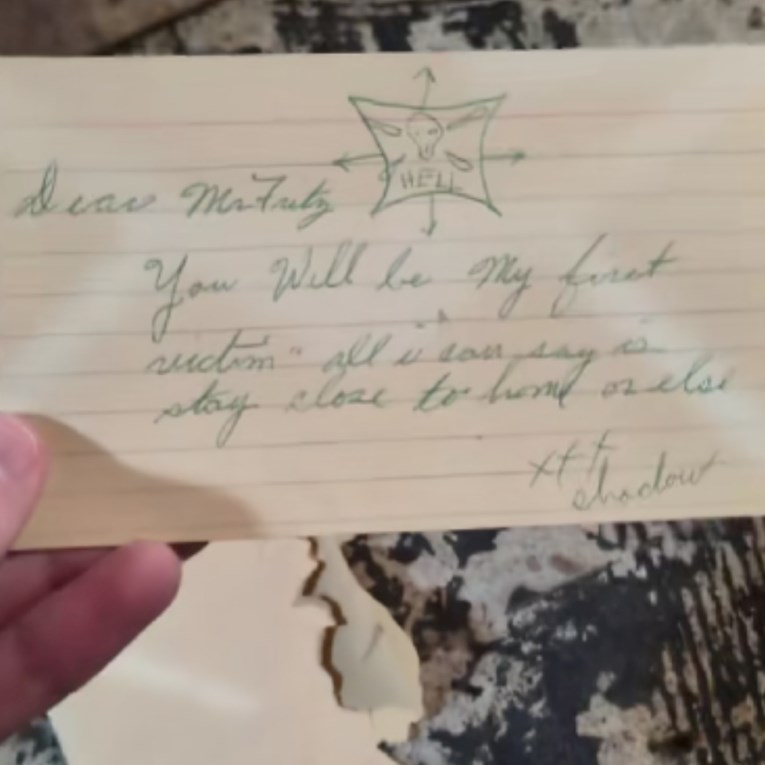 HELL
Dear Mr Fritz
You Will be My first
victim" all i can say is
stay close to home or else
xtt
shadow